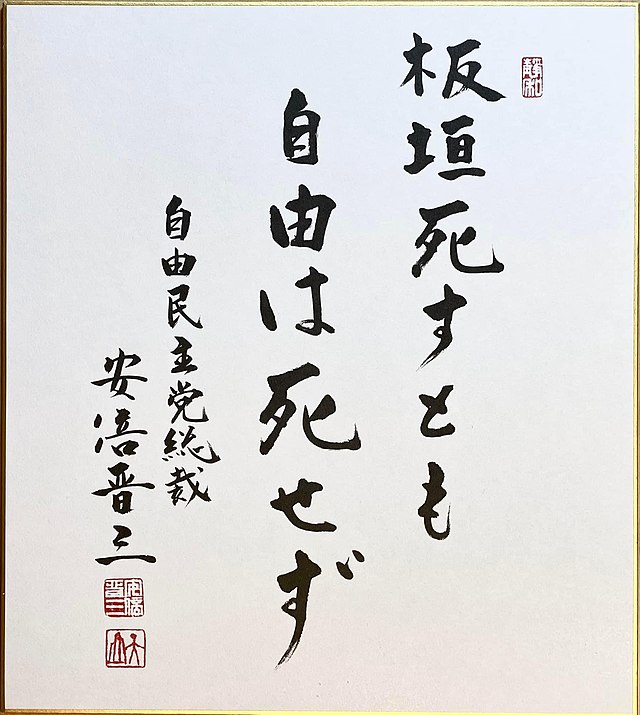 板垣死すとも
自由は死せず
自由民主党総裁
安倍晋三
安倍晋三